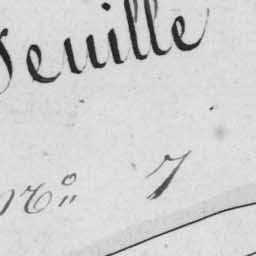 Feuille
No 7